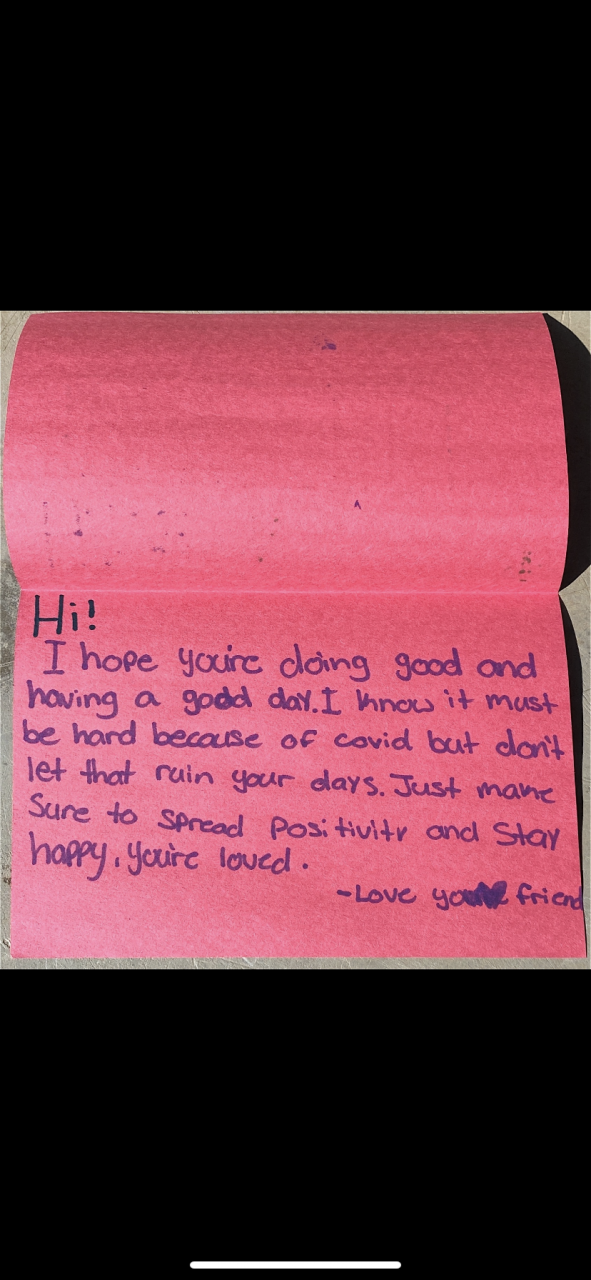 Hi!
I hope you're doing good and
having a good day. I know it must
be hard because of covid but don't
let that ruin your days. Just make
Sure to spread Positivity and Stay
happy, you're loved.
-Love your friend